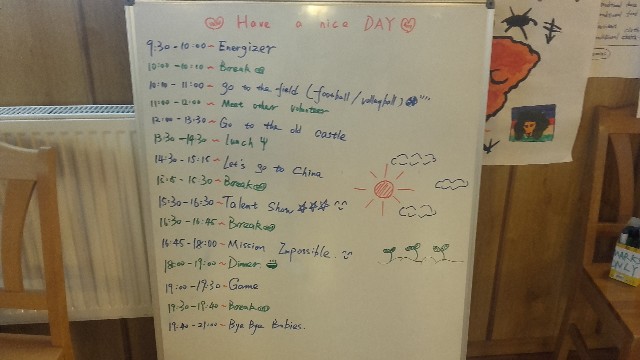 Have a nice DAY
9:30-10:00~Energizer
10:00-10:10~Break
10:10-11:00~go to the field (football/volleyball)
11:00-12:00~Meet other volunteer
12:00-13:30~Go to the old castle
13:30-14:30~Lunch
14:30-15:15~Let's go to China
15:15-15:30~Break
15:30-16:30~Talent Show
16:30-16:45~Break
16:45-18:00~Mission Impossible.
18:00-19:00~Dinner
19:00-19:30~Game
19:30-19:40~Break
19:40-21:00~Bye Bye Babies.
ONLY